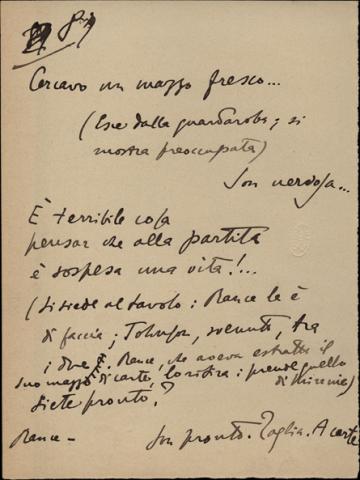 Cercavo un mazzo fresco...
(Esce dalla guardaroba; si
mostra preoccupata)
Son nervosa...
È terribile cosa
pensar che alla partita
è sospesa una vita!...
(Si siede al tavolo: Rance le è
di faccia; Johnson, svenuto, tra
i due. Rance, che aveva estratto il
suo mazzo di carte, lo ritira: prende quello
di Minnie)
Siete pronto?
Rance –
Son pronto. Taglia. A carte